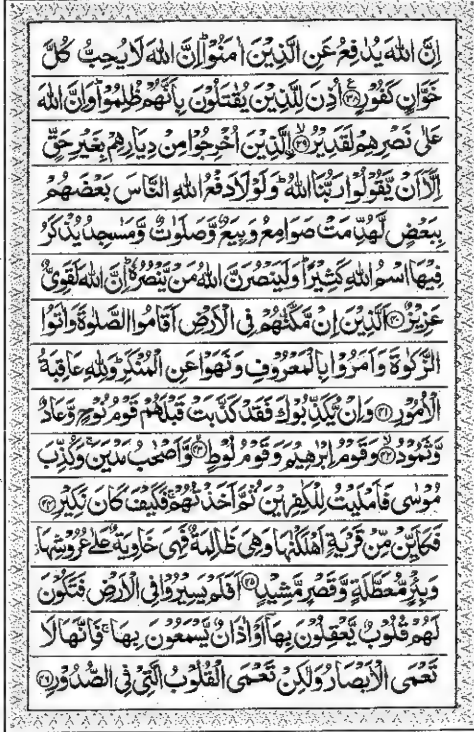 اِنَّ اللّٰهَ يُدٰفِعُ عَنِ الَّذِيْنَ اٰمَنُوْاؕ اِنَّ اللّٰهَ لَا يُحِبُّ كُلَّ
خَوَّانٍ كَفُوْرٍ۠ ﴿۳۸﴾ اُذِنَ لِلَّذِيْنَ يُقٰتَلُوْنَ بِاَنَّهُمْ ظُلِمُوْاؕ وَاِنَّ اللّٰهَ
عَلٰى نَصْرِهِمْ لَقَدِيْرُۙ ﴿۳۹﴾ اِلَّذِيْنَ اُخْرِجُوْا مِنْ دِيَارِهِمْ بِغَيْرِ حَقٍّ
اِلَّاۤ اَنْ يَّقُوْلُوْا رَبُّنَا اللّٰهُؕ وَلَوْلَا دَفْعُ اللّٰهِ النَّاسَ بَعْضَهُمْ
بِبَعْضٍ لَّهُدِّمَتْ صَوَامِعُ وَبِيَعٌ وَّصَلَوٰتٌ وَّمَسٰجِدُ يُذْكَرُ
فِيْهَا اسْمُ اللّٰهِ كَثِيْرًاؕ وَلَيَنْصُرَنَّ اللّٰهُ مَنْ يَّنْصُرُهٗؕ اِنَّ اللّٰهَ لَقَوِيٌّ
عَزِيْزٌ ﴿۴۰﴾ اَلَّذِيْنَ اِنْ مَّكَّنّٰهُمْ فِى الْاَرْضِ اَقَامُوا الصَّلٰوةَ وَاٰتَوُا
الزَّكٰوةَ وَاَمَرُوْا بِالْمَعْرُوْفِ وَنَهَوْا عَنِ الْمُنْكَرِؕ وَلِلّٰهِ عَاقِبَةُ
الْاُمُوْرِ ﴿۴۱﴾ وَاِنْ يُّكَذِّبُوْكَ فَقَدْ كَذَّبَتْ قَبْلَهُمْ قَوْمُ نُوْحٍ وَّعَادٌ
وَّثَمُوْدُۙ ﴿۴۲﴾ وَقَوْمُ اِبْرٰهِيْمَ وَقَوْمُ لُوْطٍۙ ﴿۴۳﴾ وَّاَصْحٰبُ مَدْيَنَۚ وَكُذِّبَ
مُوْسٰى فَاَمْلَيْتُ لِلْكٰفِرِيْنَ ثُمَّ اَخَذْتُهُمْۚ فَكَيْفَ كَانَ نَكِيْرِ ﴿۴۴﴾
فَكَاَيِّنْ مِّنْ قَرْيَةٍ اَهْلَكْنٰهَا وَهِيَ ظَالِمَةٌ فَهِيَ خَاوِيَةٌ عَلٰى عُرُوْشِهَا
وَبِئْرٍ مُّعَطَّلَةٍ وَّقَصْرٍ مَّشِيْدٍ ﴿۴۵﴾ اَفَلَمْ يَسِيْرُوْا فِى الْاَرْضِ فَتَكُوْنَ
لَهُمْ قُلُوْبٌ يَّعْقِلُوْنَ بِهَاۤ اَوْ اٰذَانٌ يَّسْمَعُوْنَ بِهَاۚ فَاِنَّهَا لَا
تَعْمَى الْاَبْصَارُ وَلٰكِنْ تَعْمَى الْقُلُوْبُ الَّتِىْ فِى الصُّدُوْرِ ﴿۴۶﴾